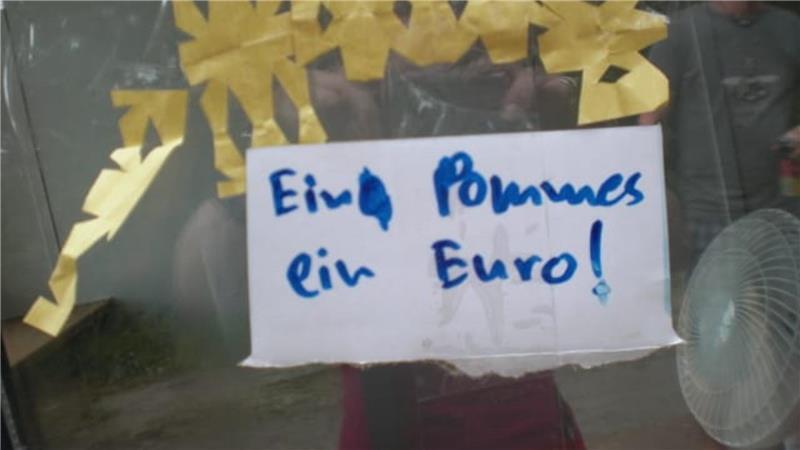 Eine Pommes
ein Euro!